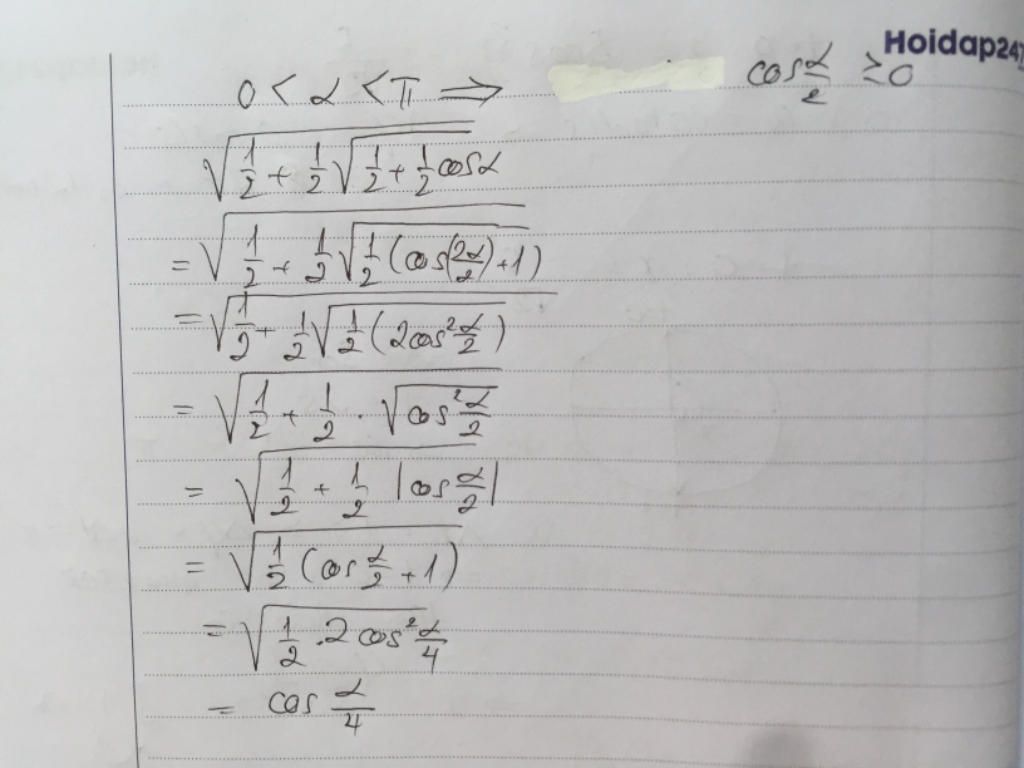 Hoidap247
0 < α < π ⟹ cos α/2 ≥ 0
√(1/2 + 1/2 √(1/2 + 1/2 cosα))
= √(1/2 + 1/2 √(1/2 (cos(2α/2) + 1)))
= √(1/2 + 1/2 √(1/2 (2cos² α/2)))
= √(1/2 + 1/2 · √(cos² α/2))
= √(1/2 + 1/2 |cos α/2|)
= √(1/2 (cos α/2 + 1))
= √(1/2 · 2 cos² α/4)
= cos α/4